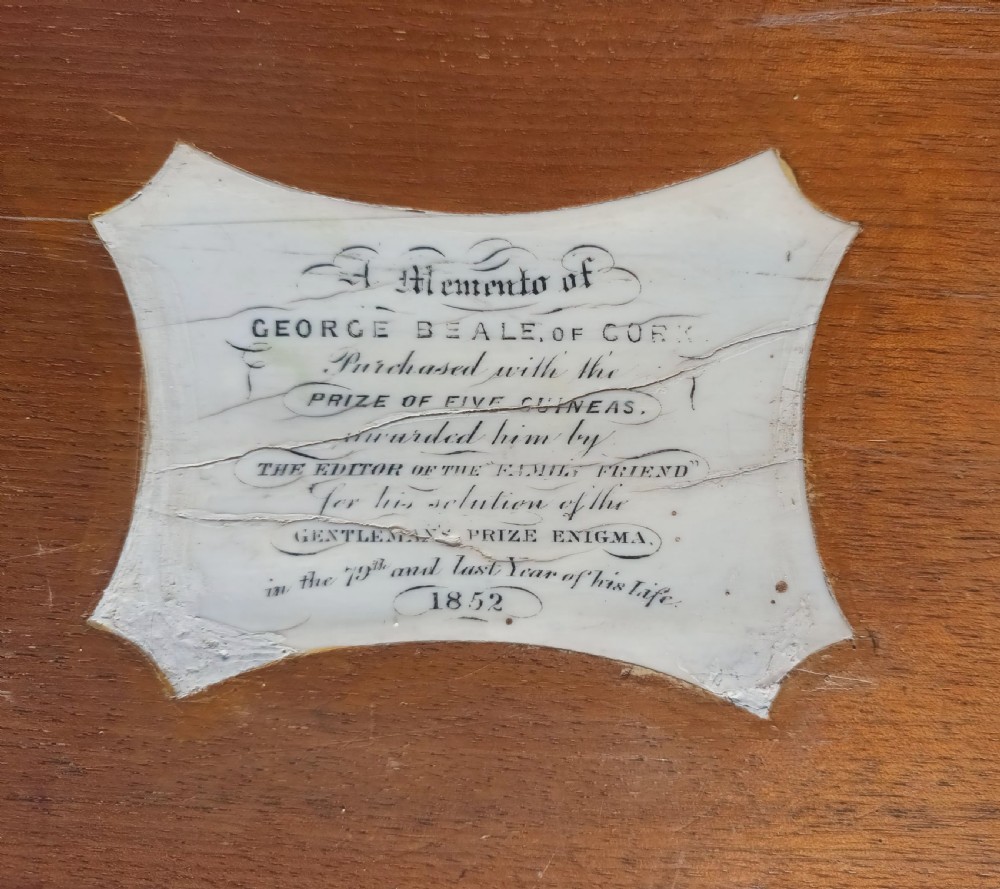 A Memento of
GEORGE BEALE, OF CORK
Purchased with the
PRIZE OF FIVE GUINEAS,
awarded him by
THE EDITOR OF THE "FAMILY FRIEND"
for his solution of the
GENTLEMAN'S PRIZE ENIGMA,
in the 79th and last Year of his Life.
1852